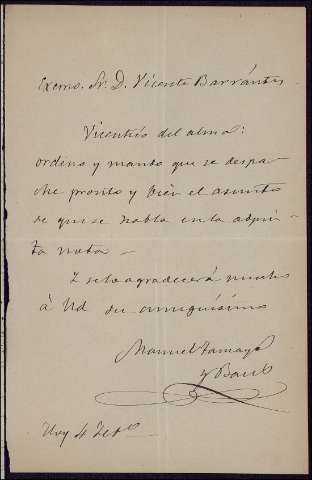 Excmo. Sr. D. Vicente Barrántes
Vicentito del alma:
ordeno y mando que se despa-
che pronto y bien el asunto
de que se habla en la adjun-
ta nota.
I se lo agradecerá mucho
á Ud su amiguísimo
Manuel Tamayo
y Baus
Hoy 4